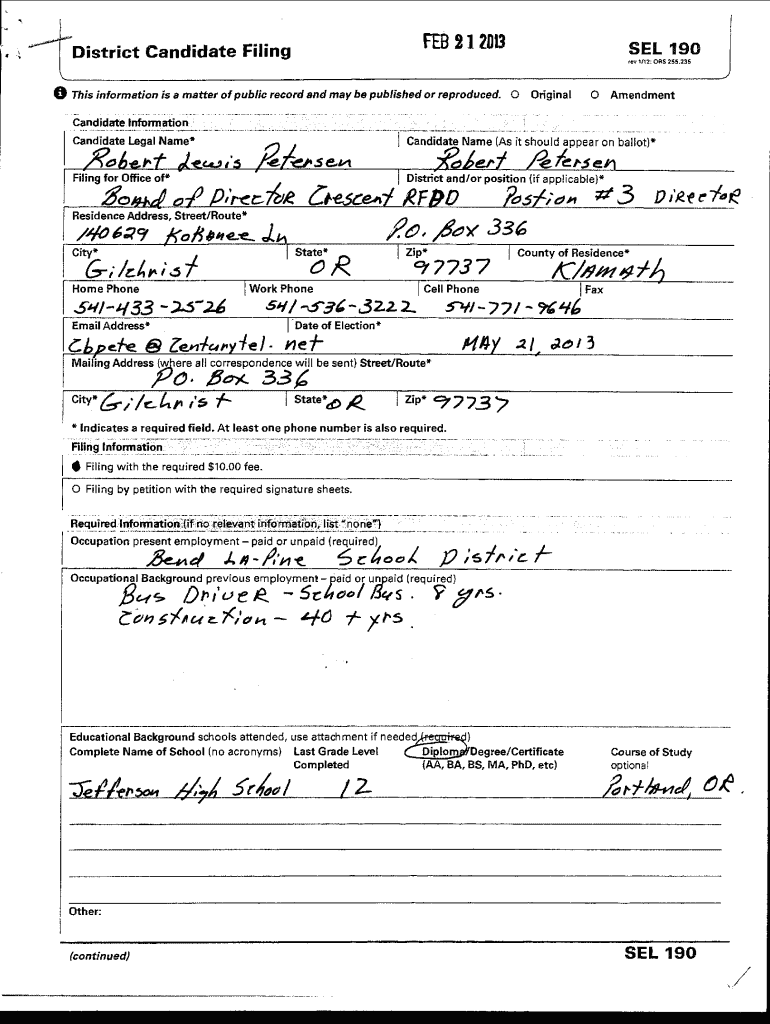 FEB 21 2013
District Candidate Filing SEL 190
rev 1/12: ORS 255.235
This information is a matter of public record and may be published or reproduced. O Original O Amendment
Candidate Information
Candidate Legal Name* Candidate Name (As it should appear on ballot)*
Robert Lewis Petersen Robert Petersen
Filing for Office of* District and/or position (if applicable)*
Board of Director Crescent RFPD Postion #3 Director
Residence Address, Street/Route*
140629 Kokanee Ln P.O. Box 336
City* State* Zip* County of Residence*
Gilchrist OR 97737 Klamath
Home Phone Work Phone Cell Phone Fax
541-433-2526 541-536-3222 541-771-9646
Email Address* Date of Election*
Cbpete @ Centurytel. net MAY 21, 2013
Mailing Address (where all correspondence will be sent) Street/Route*
P.O. Box 336
City* Gilchrist State* OR Zip* 97737
* Indicates a required field. At least one phone number is also required.
Filing Information
Filing with the required $10.00 fee.
O Filing by petition with the required signature sheets.
Required Information (if no relevant information, list "none")
Occupation present employment – paid or unpaid (required)
Bend LA-Pine School District
Occupational Background previous employment – paid or unpaid (required)
Bus Driver - School Bus. 8 yrs.
Construction - 40 + yrs.
Educational Background schools attended, use attachment if needed (required)
Complete Name of School (no acronyms) Last Grade Level Diploma/Degree/Certificate Course of Study
Completed (AA, BA, BS, MA, PhD, etc) optional
Jefferson High School 12 Portland, OR.
Other:
(continued) SEL 190